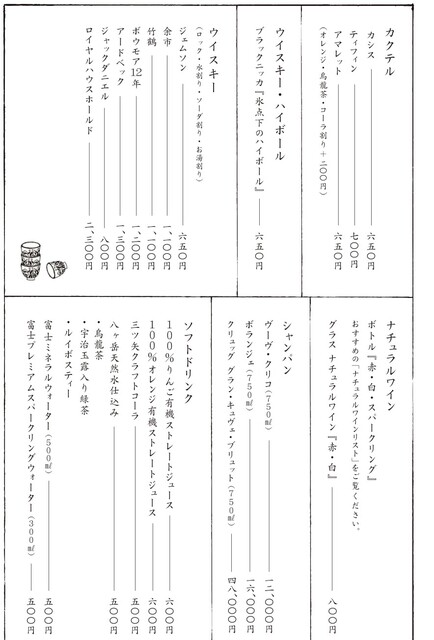 カクテル
カシス 六五〇円
ティフィン 七〇〇円
アマレット 六五〇円
(オレンジ・烏龍茶・コーラ割り+二〇〇円)
ウイスキー・ハイボール
ブラックニッカ『氷点下のハイボール』 六五〇円
ウイスキー
(ロック・水割り・ソーダ割り・お湯割り)
ジェムソン 六五〇円
余市 一、一〇〇円
竹鶴 一、一〇〇円
ボウモア12年 一、二〇〇円
アードベック 一、三〇〇円
ジャックダニエル 八〇〇円
ロイヤルハウスホールド 二、三〇〇円
ナチュラルワイン
ボトル『赤・白・スパークリング』
おすすめの「ナチュラルワインリスト」をご覧ください。
グラス ナチュラルワイン『赤・白』 八〇〇円
シャンパン
ヴーヴ・クリコ(750㎖) 一二、〇〇〇円
ボランジェ(750㎖) 一六、〇〇〇円
クリュッグ グラン・キュヴェ・ブリュット(750㎖) 四八、〇〇〇円
ソフトドリンク
100%りんご有機ストレートジュース 六〇〇円
100%オレンジ有機ストレートジュース 六〇〇円
三ツ矢クラフトコーラ 五五〇円
八ヶ岳天然水仕込み 五五〇円
・烏龍茶
・宇治玉露入り緑茶
・ルイボスティー
富士ミネラルウォーター(500㎖) 五〇〇円
富士プレミアムスパークリングウォーター(300㎖) 五〇〇円